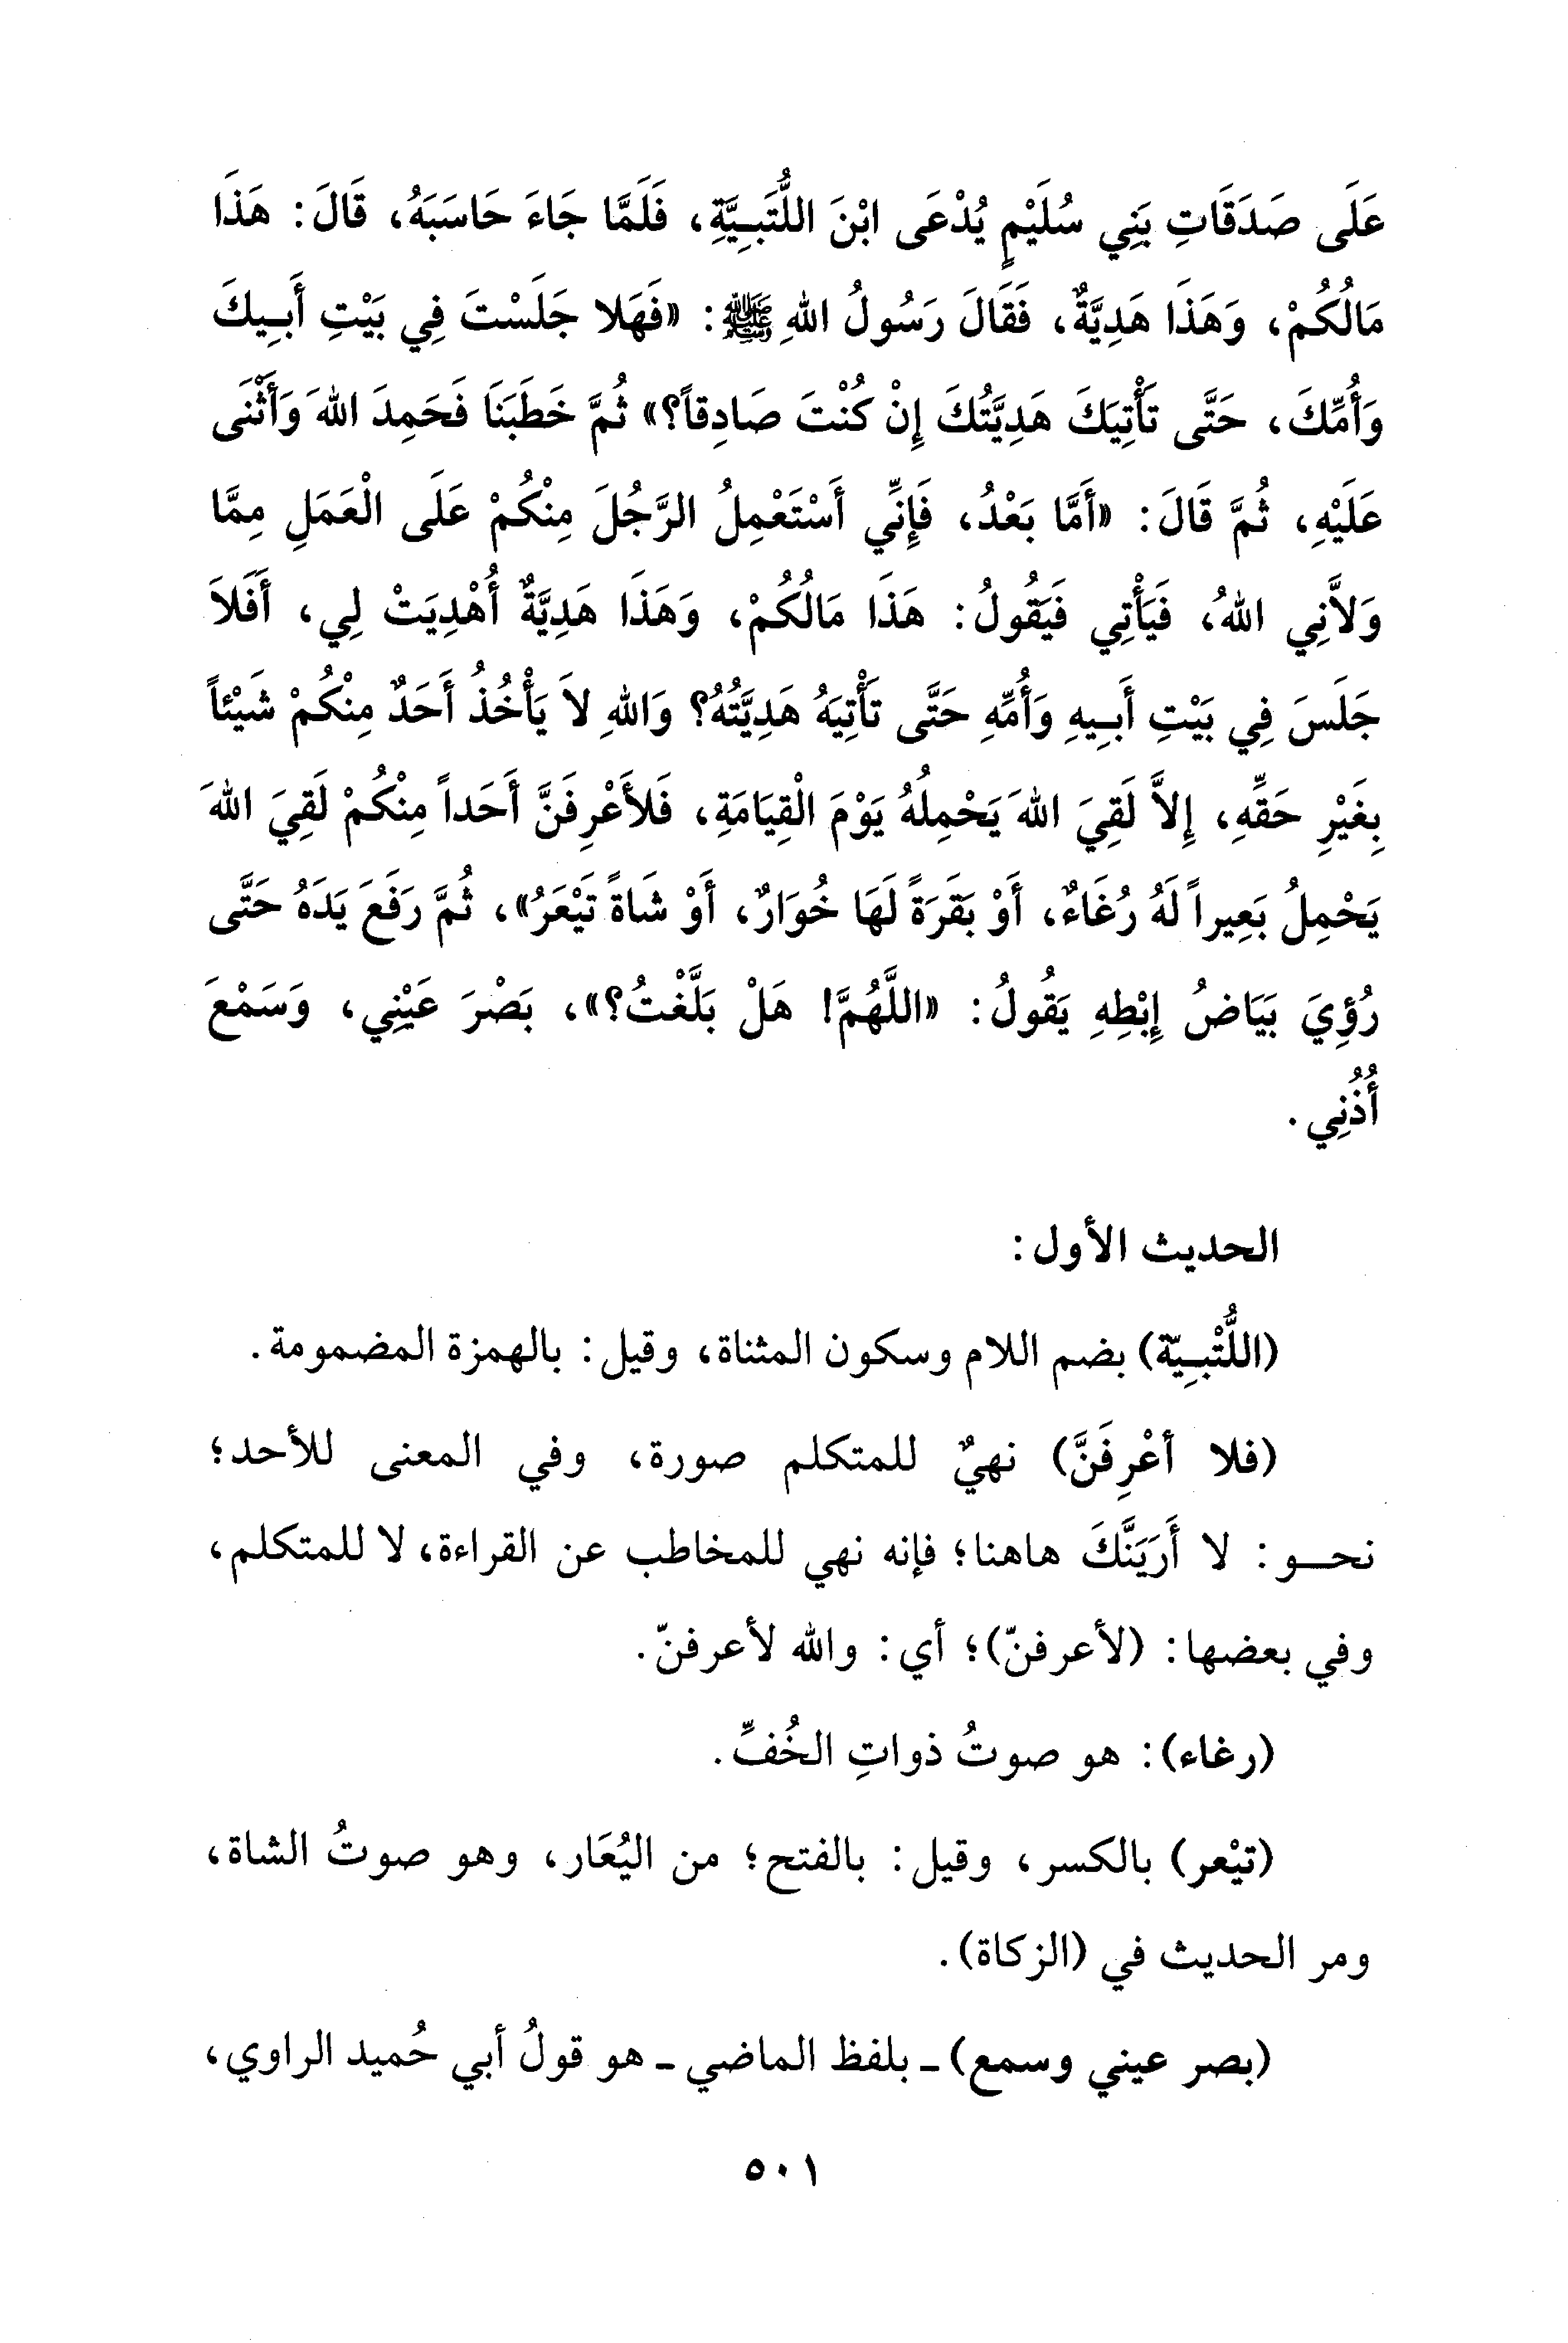 عَلَى صَدَقَاتِ بَنِي سُلَيْمٍ يُدْعَى ابْنَ اللُّتَبِيَّةِ، فَلَمَّا جَاءَ حَاسَبَهُ، قَالَ: هَذَا
مَالُكُمْ، وَهَذَا هَدِيَّةٌ، فَقَالَ رَسُولُ اللهِ ﷺ: «فَهَلا جَلَسْتَ فِي بَيْتِ أَبِيكَ
وَأُمِّكَ، حَتَّى تَأْتِيَكَ هَدِيَّتُكَ إِنْ كُنْتَ صَادِقاً؟» ثُمَّ خَطَبَنَا فَحَمِدَ اللهَ وَأَثْنَى
عَلَيْهِ، ثُمَّ قَالَ: «أَمَّا بَعْدُ، فَإِنِّي أَسْتَعْمِلُ الرَّجُلَ مِنْكُمْ عَلَى الْعَمَلِ مِمَّا
وَلاَّنِي اللهُ، فَيَأْتِي فَيَقُولُ: هَذَا مَالُكُمْ، وَهَذَا هَدِيَّةٌ أُهْدِيَتْ لِي، أَفَلاَ
جَلَسَ فِي بَيْتِ أَبِيهِ وَأُمِّهِ حَتَّى تَأْتِيَهُ هَدِيَّتُهُ؟ وَاللهِ لاَ يَأْخُذُ أَحَدٌ مِنْكُمْ شَيْئاً
بِغَيْرِ حَقِّهِ، إِلاَّ لَقِيَ اللهَ يَحْمِلُهُ يَوْمَ الْقِيَامَةِ، فَلأَعْرِفَنَّ أَحَداً مِنْكُمْ لَقِيَ اللهَ
يَحْمِلُ بَعِيراً لَهُ رُغَاءٌ، أَوْ بَقَرَةً لَهَا خُوَارٌ، أَوْ شَاةً تَيْعَرُ»، ثُمَّ رَفَعَ يَدَهُ حَتَّى
رُؤِيَ بَيَاضُ إِبْطِهِ يَقُولُ: «اللَّهُمَّ! هَلْ بَلَّغْتُ؟»، بَصْرَ عَيْنِي، وَسَمْعَ
أُذُنِي.
الحديث الأول:
(اللُّتْبِيّة) بضم اللام وسكون المثناة، وقيل: بالهمزة المضمومة.
(فلا أعْرِفَنَّ) نهيٌ للمتكلم صورة، وفي المعنى للأحد؛
نحو: لا أَرَيَنَّكَ هاهنا؛ فإنه نهي للمخاطب عن القراءة، لا للمتكلم،
وفي بعضها: (لأعرفنّ)؛ أي: والله لأعرفنّ.
(رغاء): هو صوتُ ذواتِ الخُفِّ.
(تيْعر) بالكسر، وقيل: بالفتح؛ من اليُعَار، وهو صوتُ الشاة،
ومر الحديث في (الزكاة).
(بصر عيني وسمع) ـ بلفظ الماضي ـ هو قولُ أبي حُميد الراوي،
٥٠١